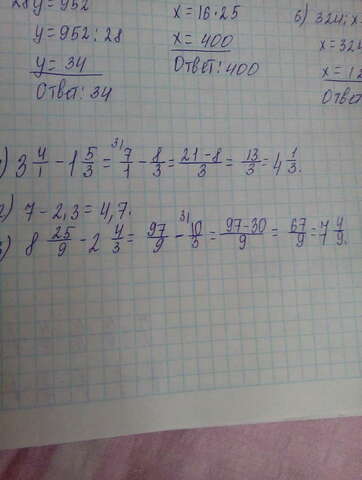 28y = 952
y = 952 : 28
y = 34
Ответ: 34
x = 16 · 25
x = 400
Ответ: 400
6) 324 : x
x = 324
x = 12
Ответ
) 3 4/1 - 1 5/3 = 3) 7/1 - 8/3 = 21-8/3 = 13/3 = 4 1/3.
2) 7 - 2,3 = 4,7.
3) 8 25/9 - 2 4/3 = 97/9 - 3) 10/3 = 97-30/9 = 67/9 = 7 4/9.